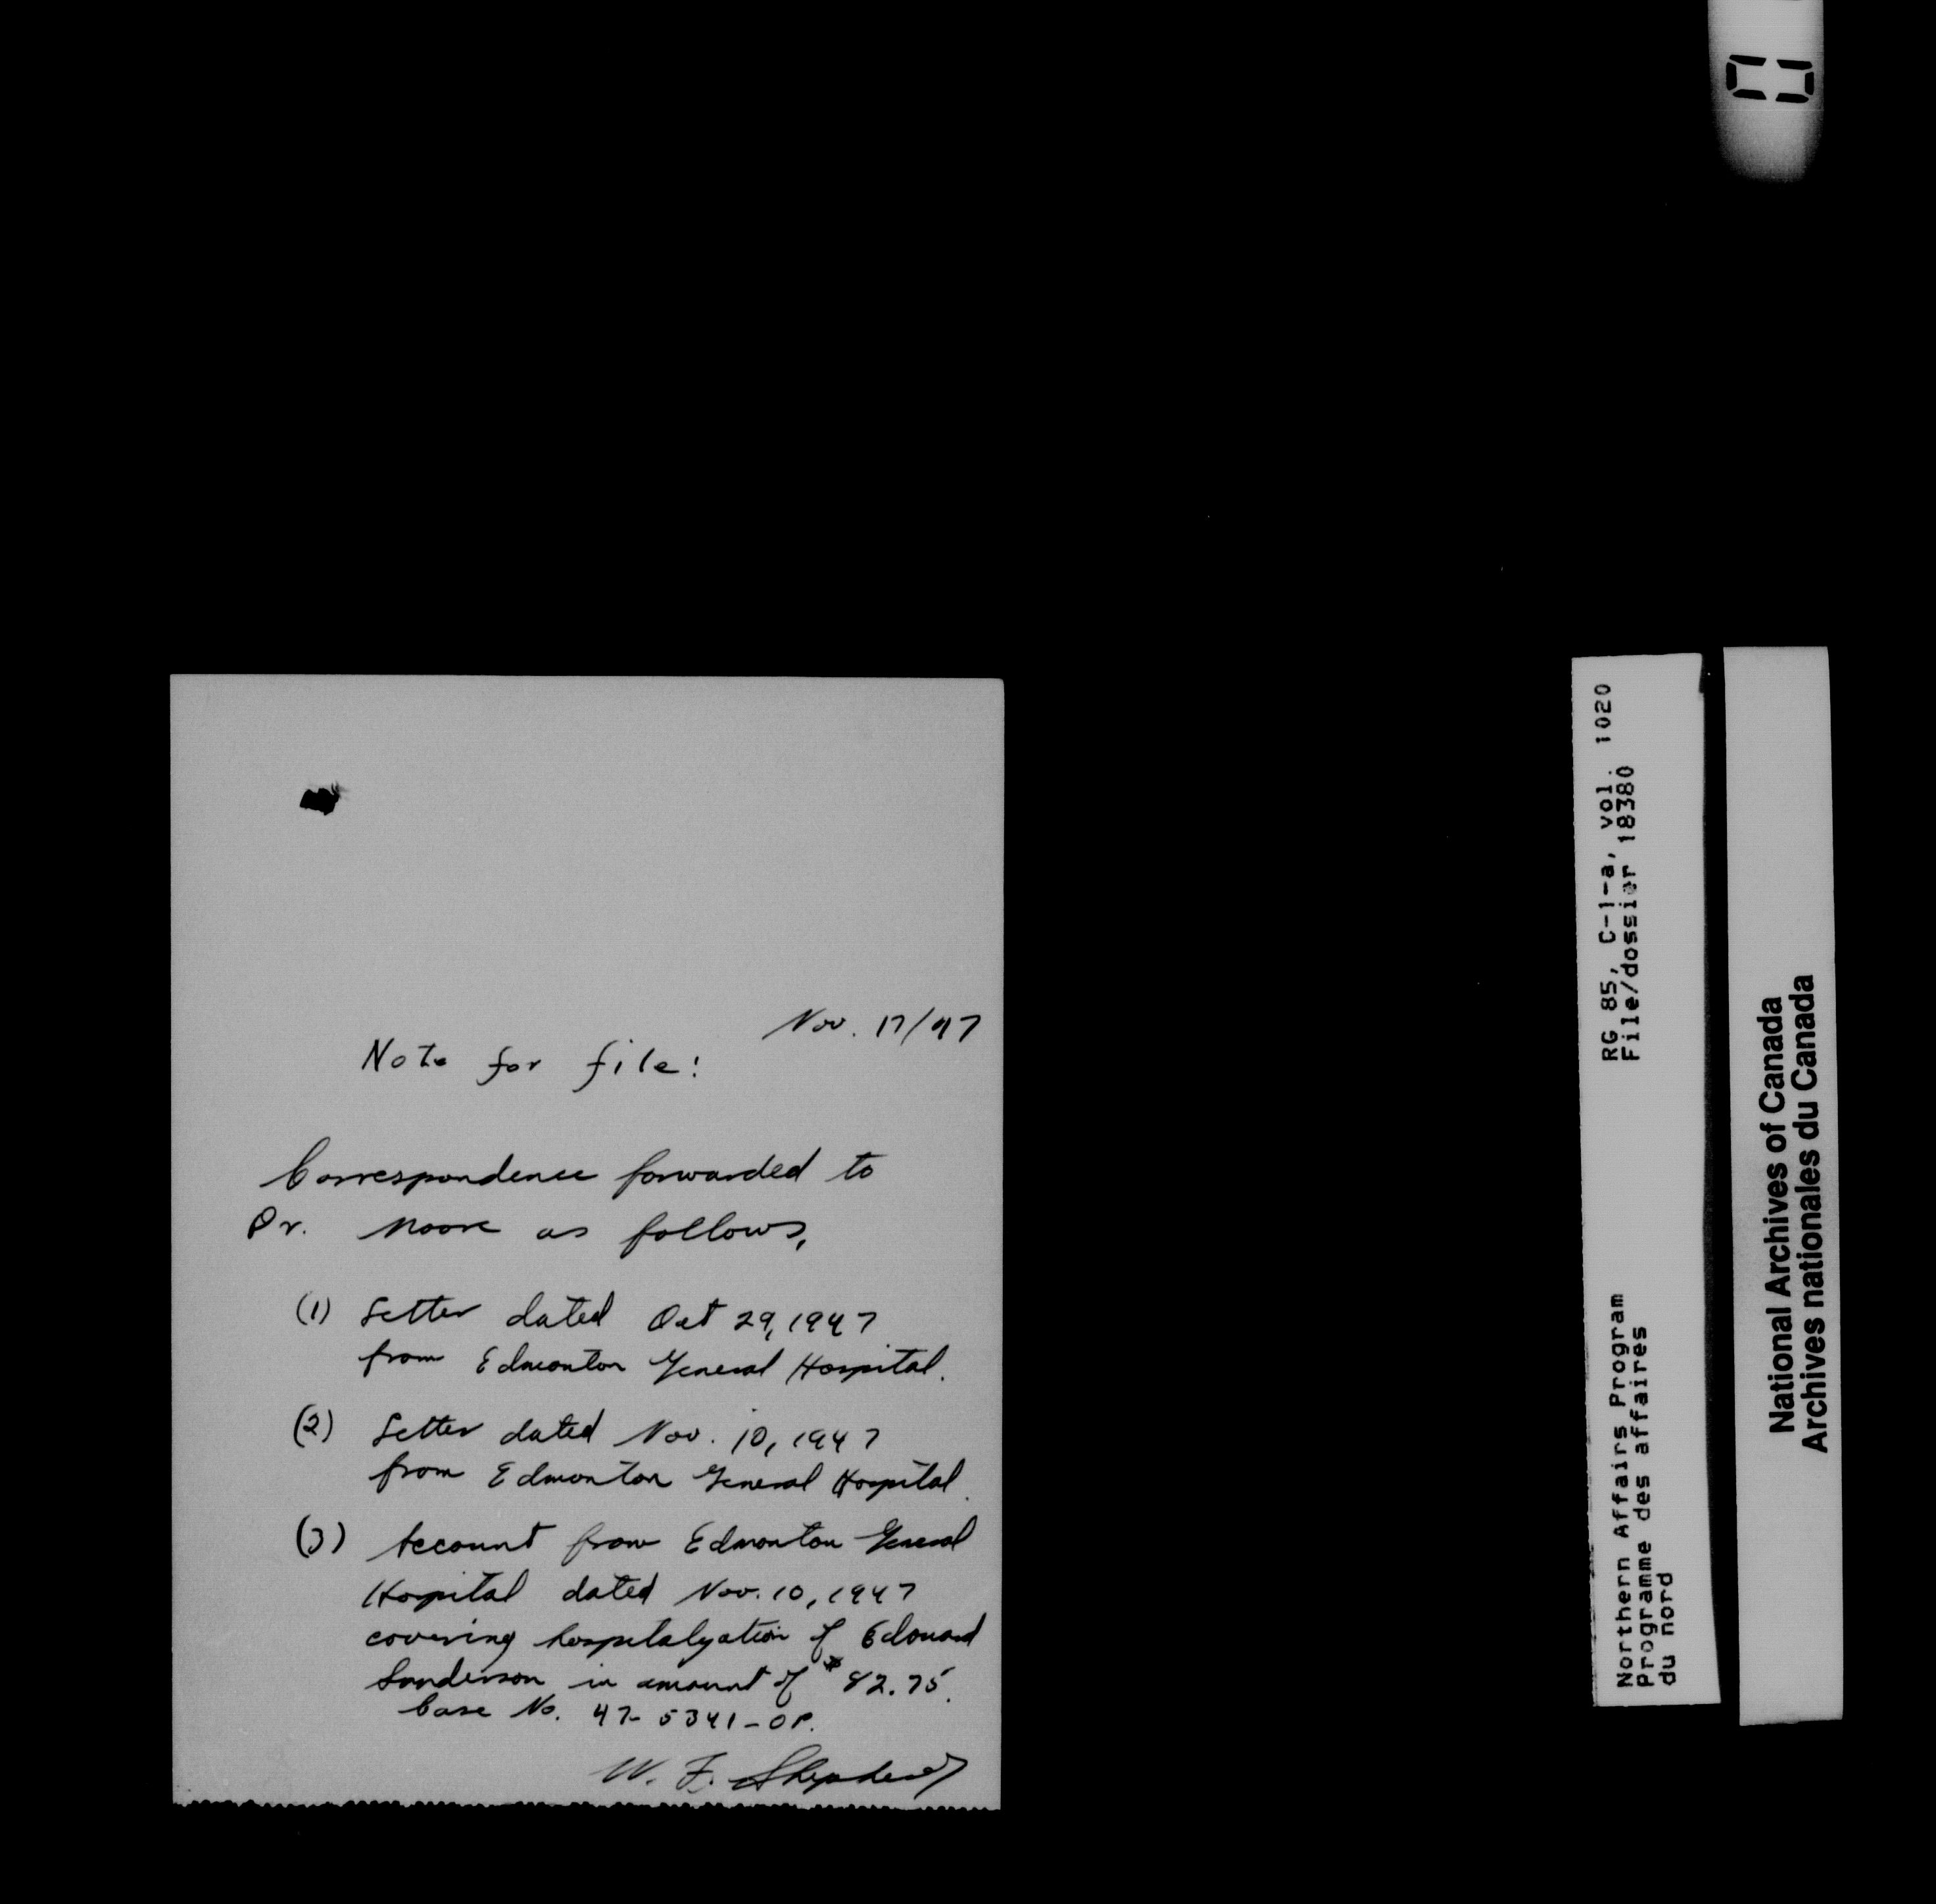 Nov. 17/47
Note for file:
Correspondence forwarded to
Dr. Moore as follows,
(1) Letter dated Oct 29, 1947
from Edmonton General Hospital.
(2) Letter dated Nov. 10, 1947
from Edmonton General Hospital.
(3) Account from Edmonton General
Hospital dated Nov. 10, 1947
covering hospitalyation of Edouard
Sanderson in amount of $82.75.
Case No. 47-5341-OP.
W. F. Shepherd
RG 85, C-1-a, vol. 1020
File/dossier 18380
Northern Affairs Program
Programme des affaires
du nord
National Archives of Canada
Archives nationales du Canada